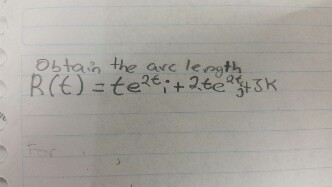 Obtain the arc length
R(t) = te^{2t}i + 2te^{2t}j + 3K